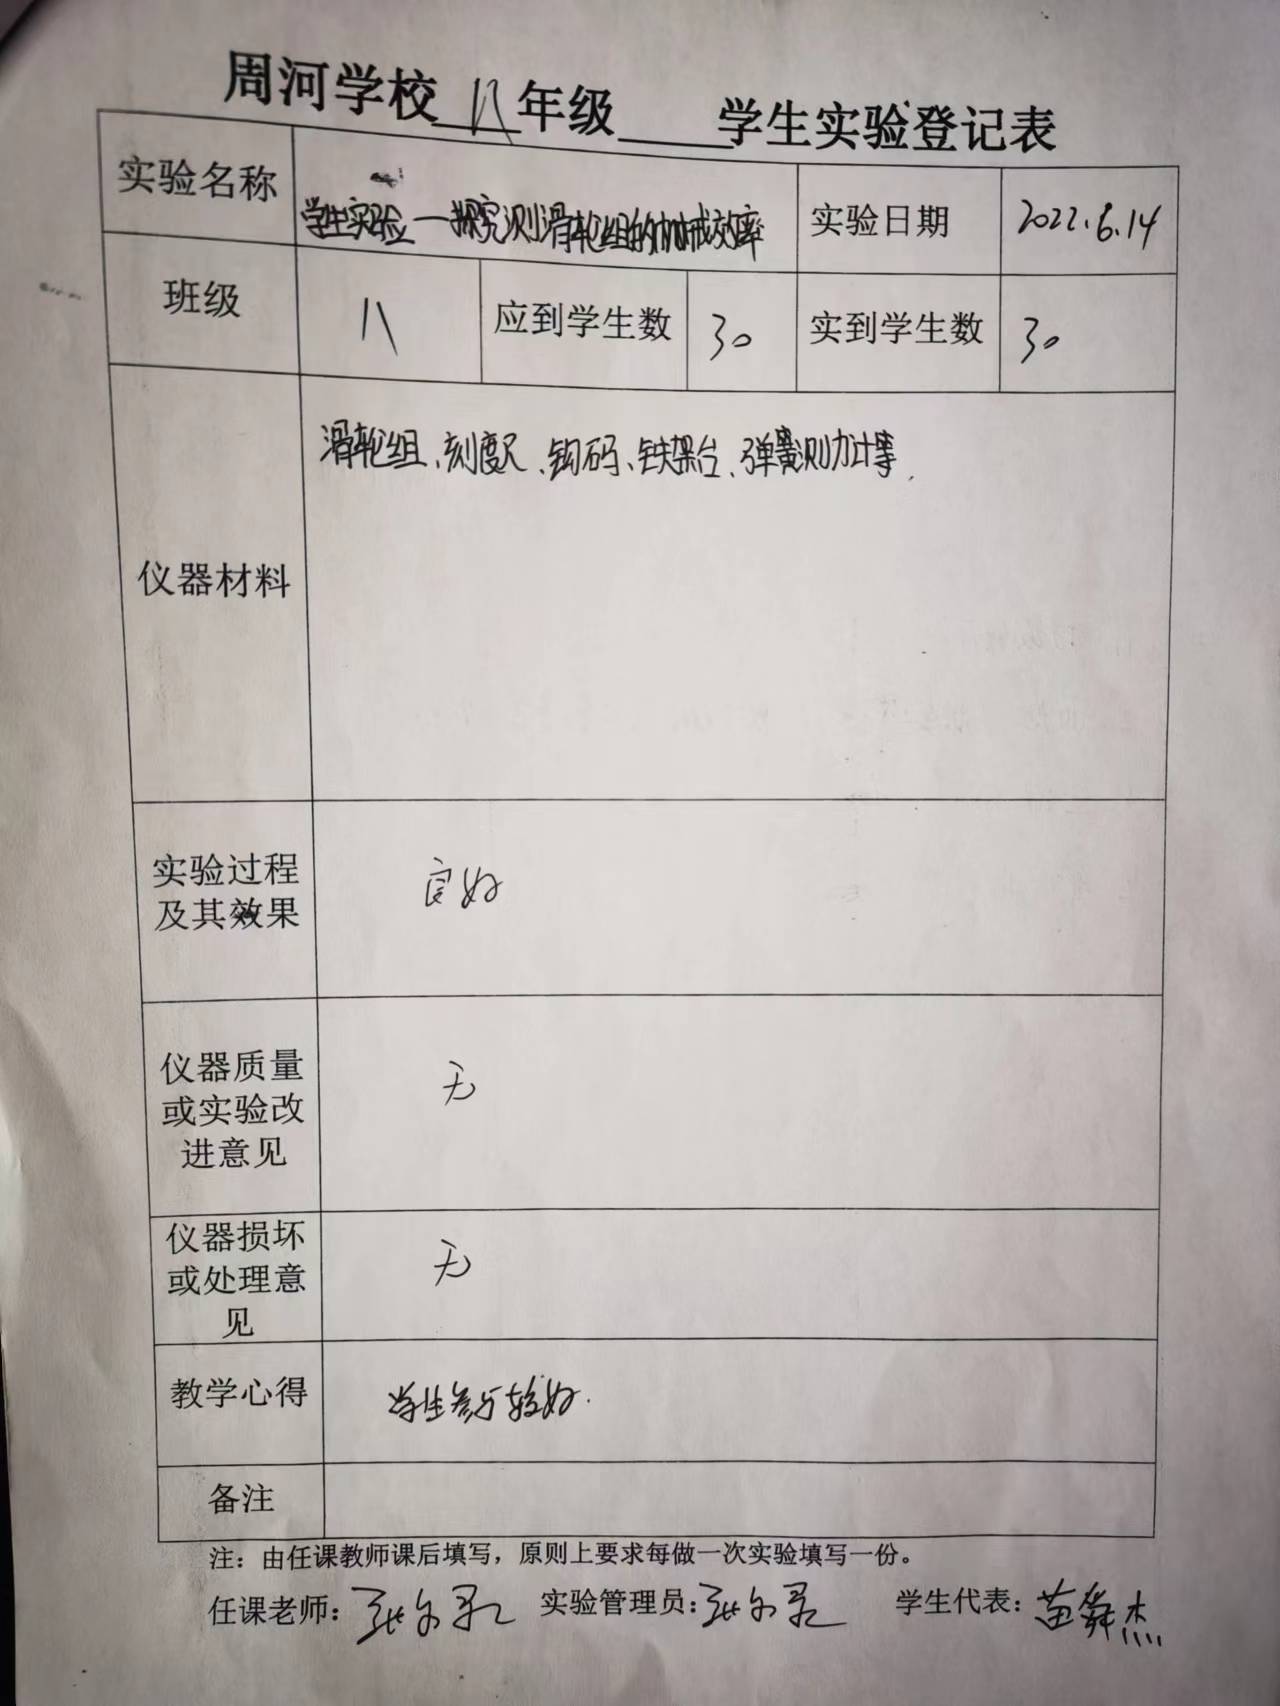 周河学校 八 年级 学生实验登记表
实验名称 学生实验一探究测滑轮组的机械效率 实验日期 2022.6.14
班级 八 应到学生数 30 实到学生数 30
仪器材料 滑轮组、刻度尺、钩码、铁架台、弹簧测力计等.
实验过程
及其效果
良好
仪器质量
或实验改
进意见
无
仪器损坏
或处理意
见
无
教学心得 学生参与较好.
备注
注：由任课教师课后填写，原则上要求每做一次实验填写一份。
任课老师: 实验管理员: 学生代表: 苗舜杰